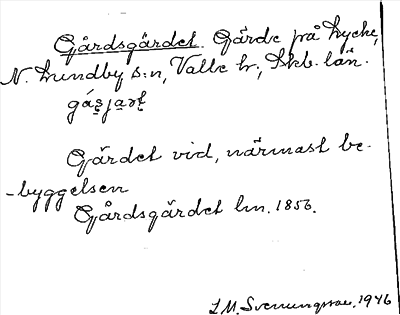 Gårdsgärdet. Gärde på Lycke,
N. Lundby s:n, Valle hr., Skb. län.
Gärdet vid, närmast be-
-byggelsen
Gårdsgärdet lm. 1856.
1946